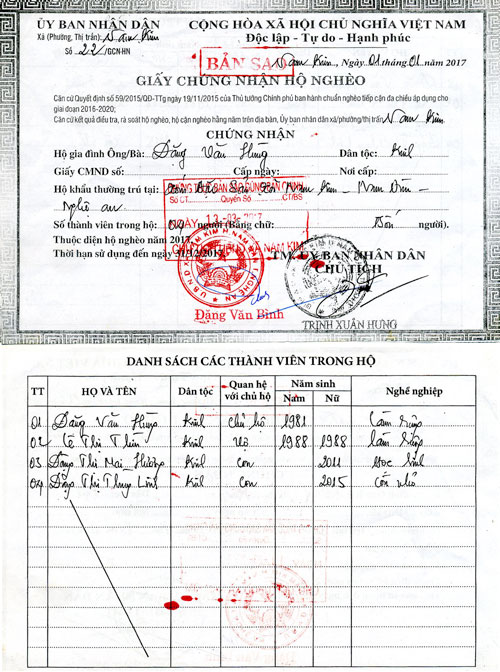 ỦY BAN NHÂN DÂN
Xã (Phường, Thị trấn): Nam Kim
Số 22/GCN-HN
CỘNG HÒA XÃ HỘI CHỦ NGHĨA VIỆT NAM
Độc lập - Tự do - Hạnh phúc
BẢN SAO
Nam Kim, Ngày 01 tháng 01 năm 2017
GIẤY CHỨNG NHẬN HỘ NGHÈO
Căn cứ Quyết định số 59/2015/QĐ-TTg ngày 19/11/2015 của Thủ tướng Chính phủ ban hành chuẩn nghèo tiếp cận đa chiều áp dụng cho
giai đoạn 2016-2020;
Căn cứ kết quả điều tra, rà soát hộ nghèo, hộ cận nghèo hằng năm trên địa bàn, Ủy ban nhân dân xã/phường/thị trấn Nam Kim
CHỨNG NHẬN
Hộ gia đình Ông/Bà: Đặng Văn Hùng Dân tộc: Kinh
Giấy CMND số: Cấp ngày: Nơi cấp:
Hộ khẩu thường trú tại: Nam Kim - Nam Đàn -
Nghệ an
Số thành viên trong hộ: 04 người (Bằng chữ: Bốn người).
Thuộc diện hộ nghèo năm 2017
Thời hạn sử dụng đến ngày 31/12/2017
CHỨNG THỰC BẢN SAO ĐÚNG BẢN CHÍNH
Số CT Quyển Số CT/BS
NGÀY 13-03-2017
CHỦ TỊCH XÃ NAM KIM
Đặng Văn Bình
TM. ỦY BAN NHÂN DÂN
CHỦ TỊCH
TRỊNH XUÂN HƯNG
DANH SÁCH CÁC THÀNH VIÊN TRONG HỘ
TT HỌ VÀ TÊN Dân tộc Quan hệ với chủ hộ Năm sinh Nam Nữ Nghề nghiệp
01 Đặng Văn Hùng Kinh chủ hộ 1981 làm ruộng
02 Thị Kinh vợ 1988 1988 làm ruộng
03 Đặng Thị Mai Hương Kinh con 2011 Học sinh
04 Đặng Thị Thuỳ Linh Kinh con 2015 còn nhỏ